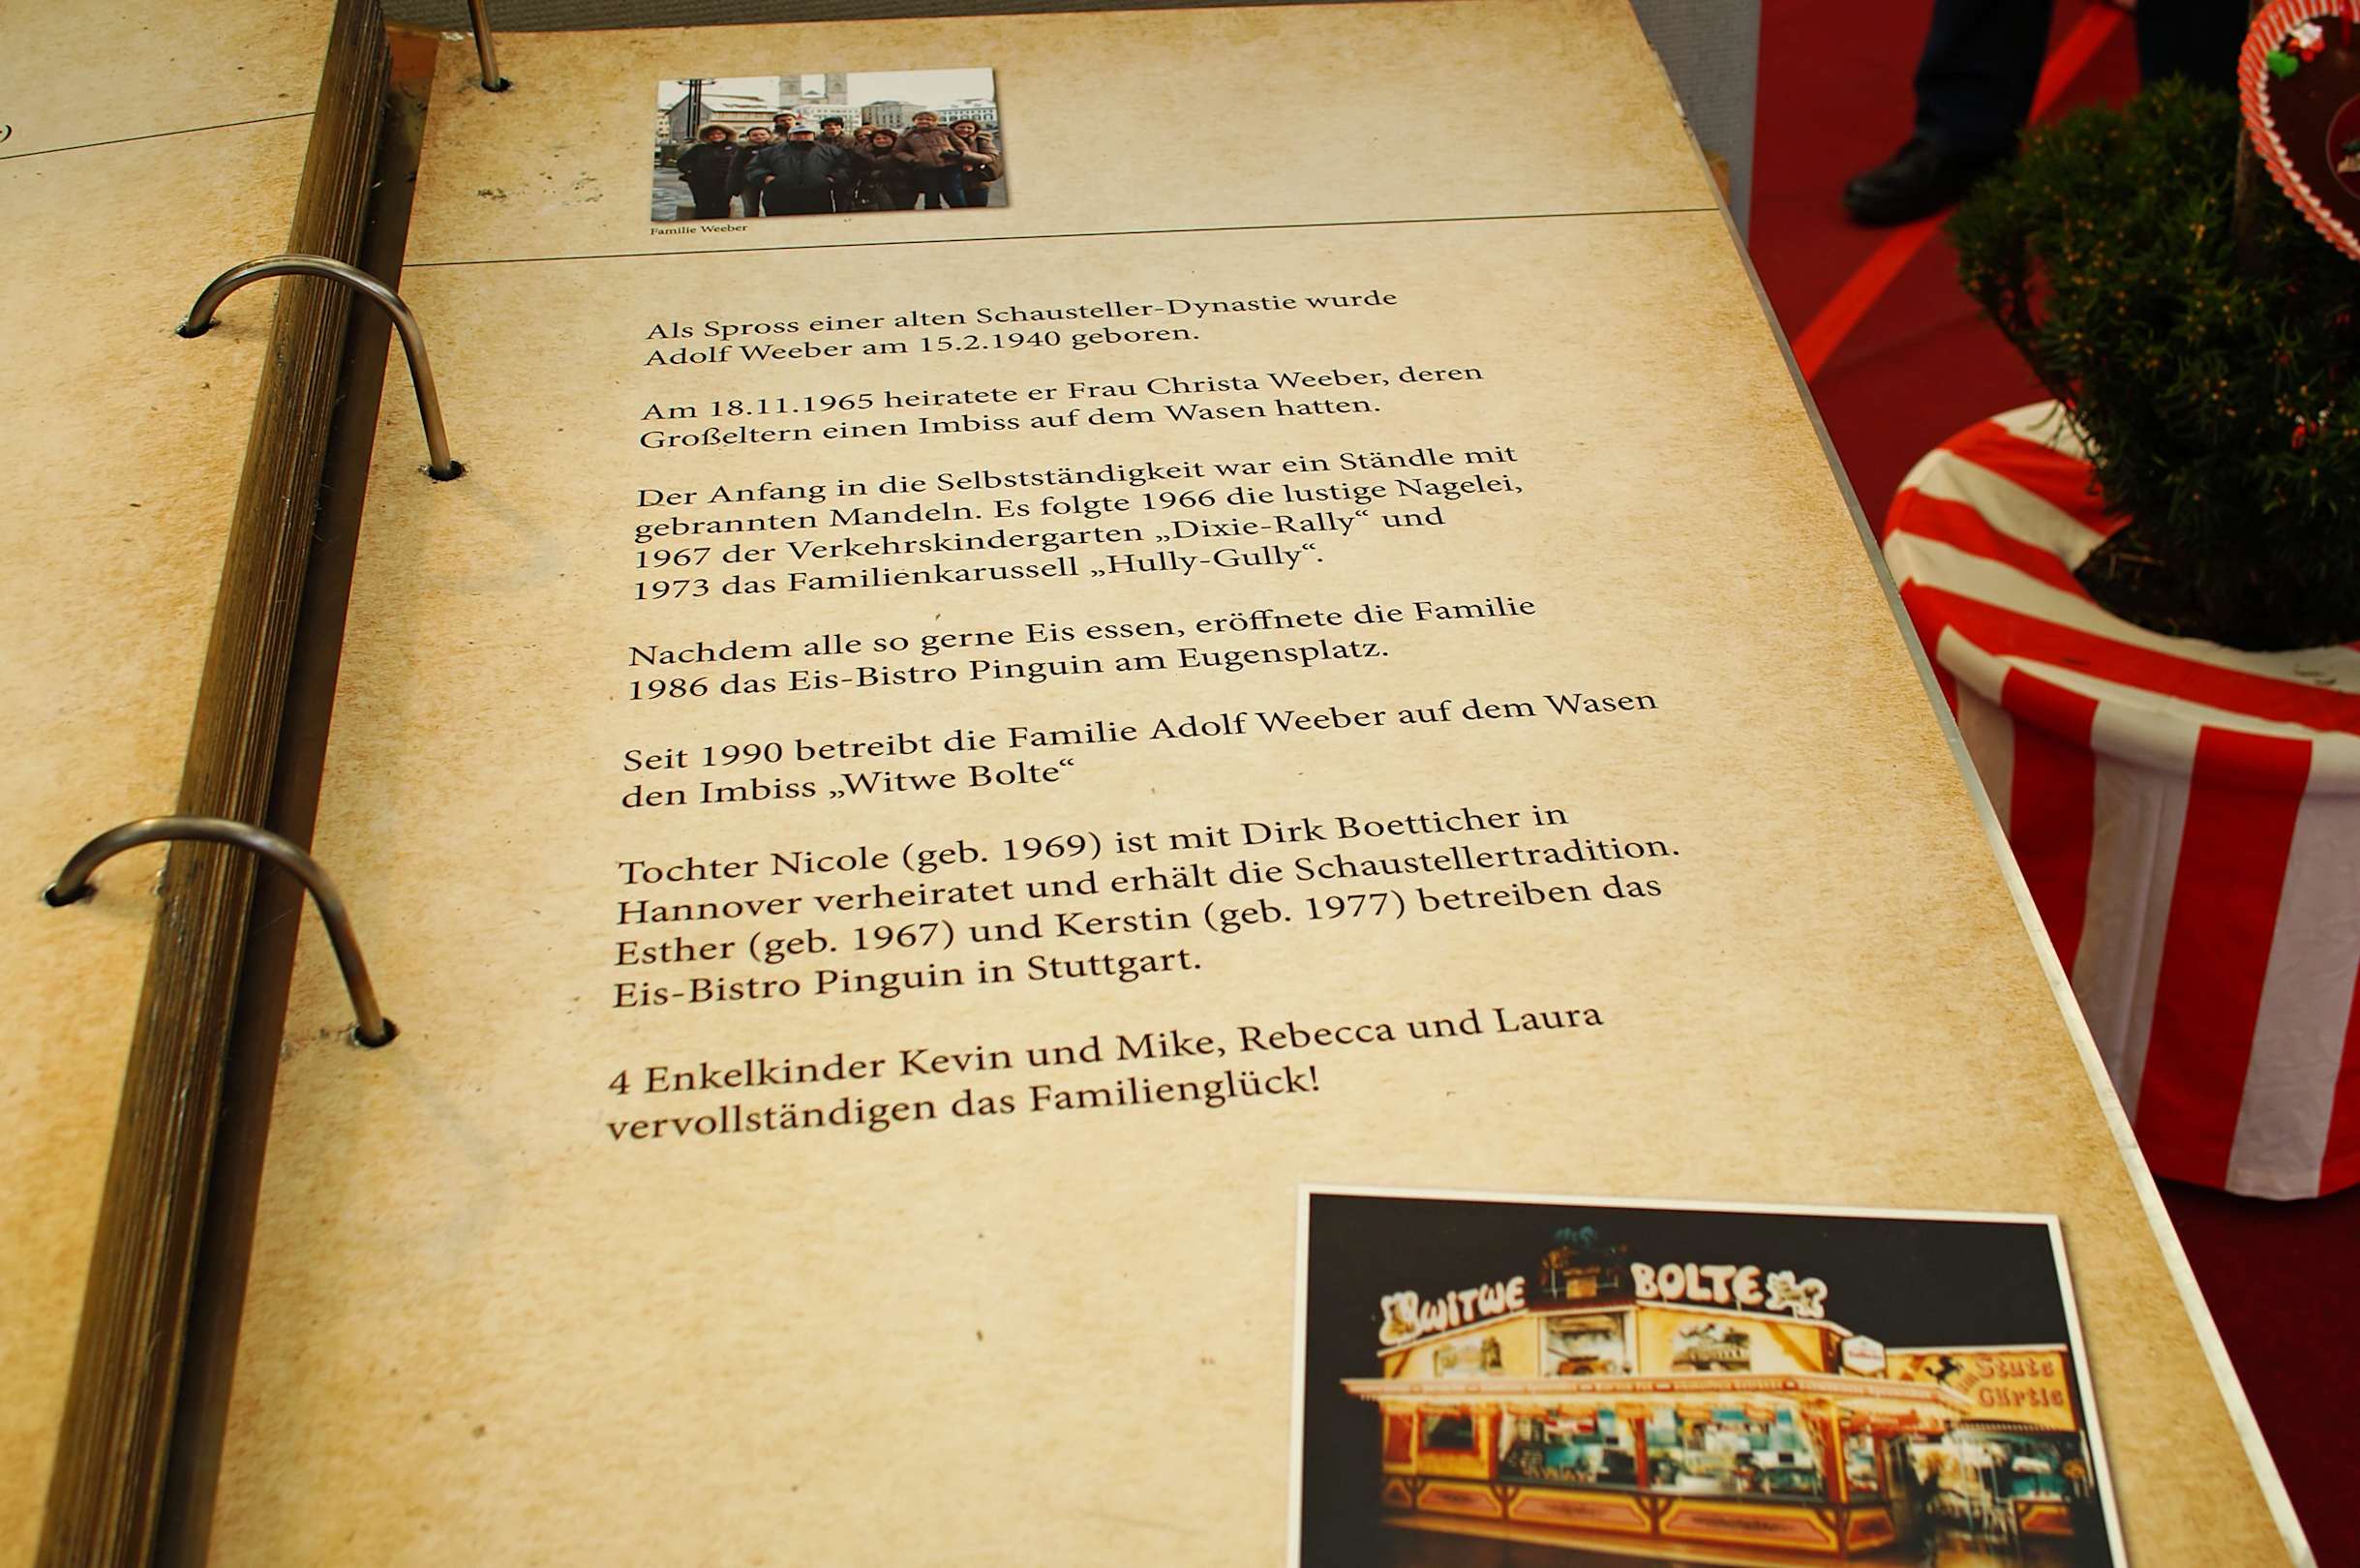 Familie Weeber
Als Spross einer alten Schausteller-Dynastie wurde
Adolf Weeber am 15.2.1940 geboren.
Am 18.11.1965 heiratete er Frau Christa Weeber, deren
Großeltern einen Imbiss auf dem Wasen hatten.
Der Anfang in die Selbstständigkeit war ein Ständle mit
gebrannten Mandeln. Es folgte 1966 die lustige Nagelei,
1967 der Verkehrskindergarten „Dixie-Rally“ und
1973 das Familienkarussell „Hully-Gully“.
Nachdem alle so gerne Eis essen, eröffnete die Familie
1986 das Eis-Bistro Pinguin am Eugensplatz.
Seit 1990 betreibt die Familie Adolf Weeber auf dem Wasen
den Imbiss „Witwe Bolte“
Tochter Nicole (geb. 1969) ist mit Dirk Boetticher in
Hannover verheiratet und erhält die Schaustellertradition.
Esther (geb. 1967) und Kerstin (geb. 1977) betreiben das
Eis-Bistro Pinguin in Stuttgart.
4 Enkelkinder Kevin und Mike, Rebecca und Laura
vervollständigen das Familienglück!
WITWE BOLTE
Stuts
Gärtle